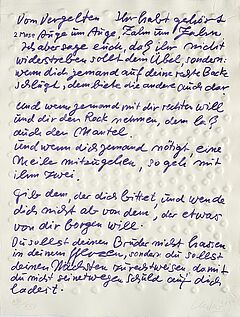 Von Vergelten Ihr habt gehört
Auge um Auge, Zahn um Zahn
Ich aber sage euch, daß ihr nicht
widerstreben sollt dem Übel, sondern:
wenn dich jemand auf deine rechte Backe
schlägt, dem biete die andere auch dar
Und wenn jemand mit dir rechten will
und dir den Rock nehmen, dem laß
auch den Mantel.
Und wenn dich jemand nötigt, eine
Meile mitzugehen, so geh mit
ihm zwei.
Gib dem, der dich bittet, und wende
dich nicht ab von dem, der etwas
von dir borgen will.
Du sollst deinen Bruder nicht hassen
in deinem Herzen, sondern du sollst
deinen Nächsten zurechtweisen damit
du nicht seinetwegen Schuld auf dich
ladest.